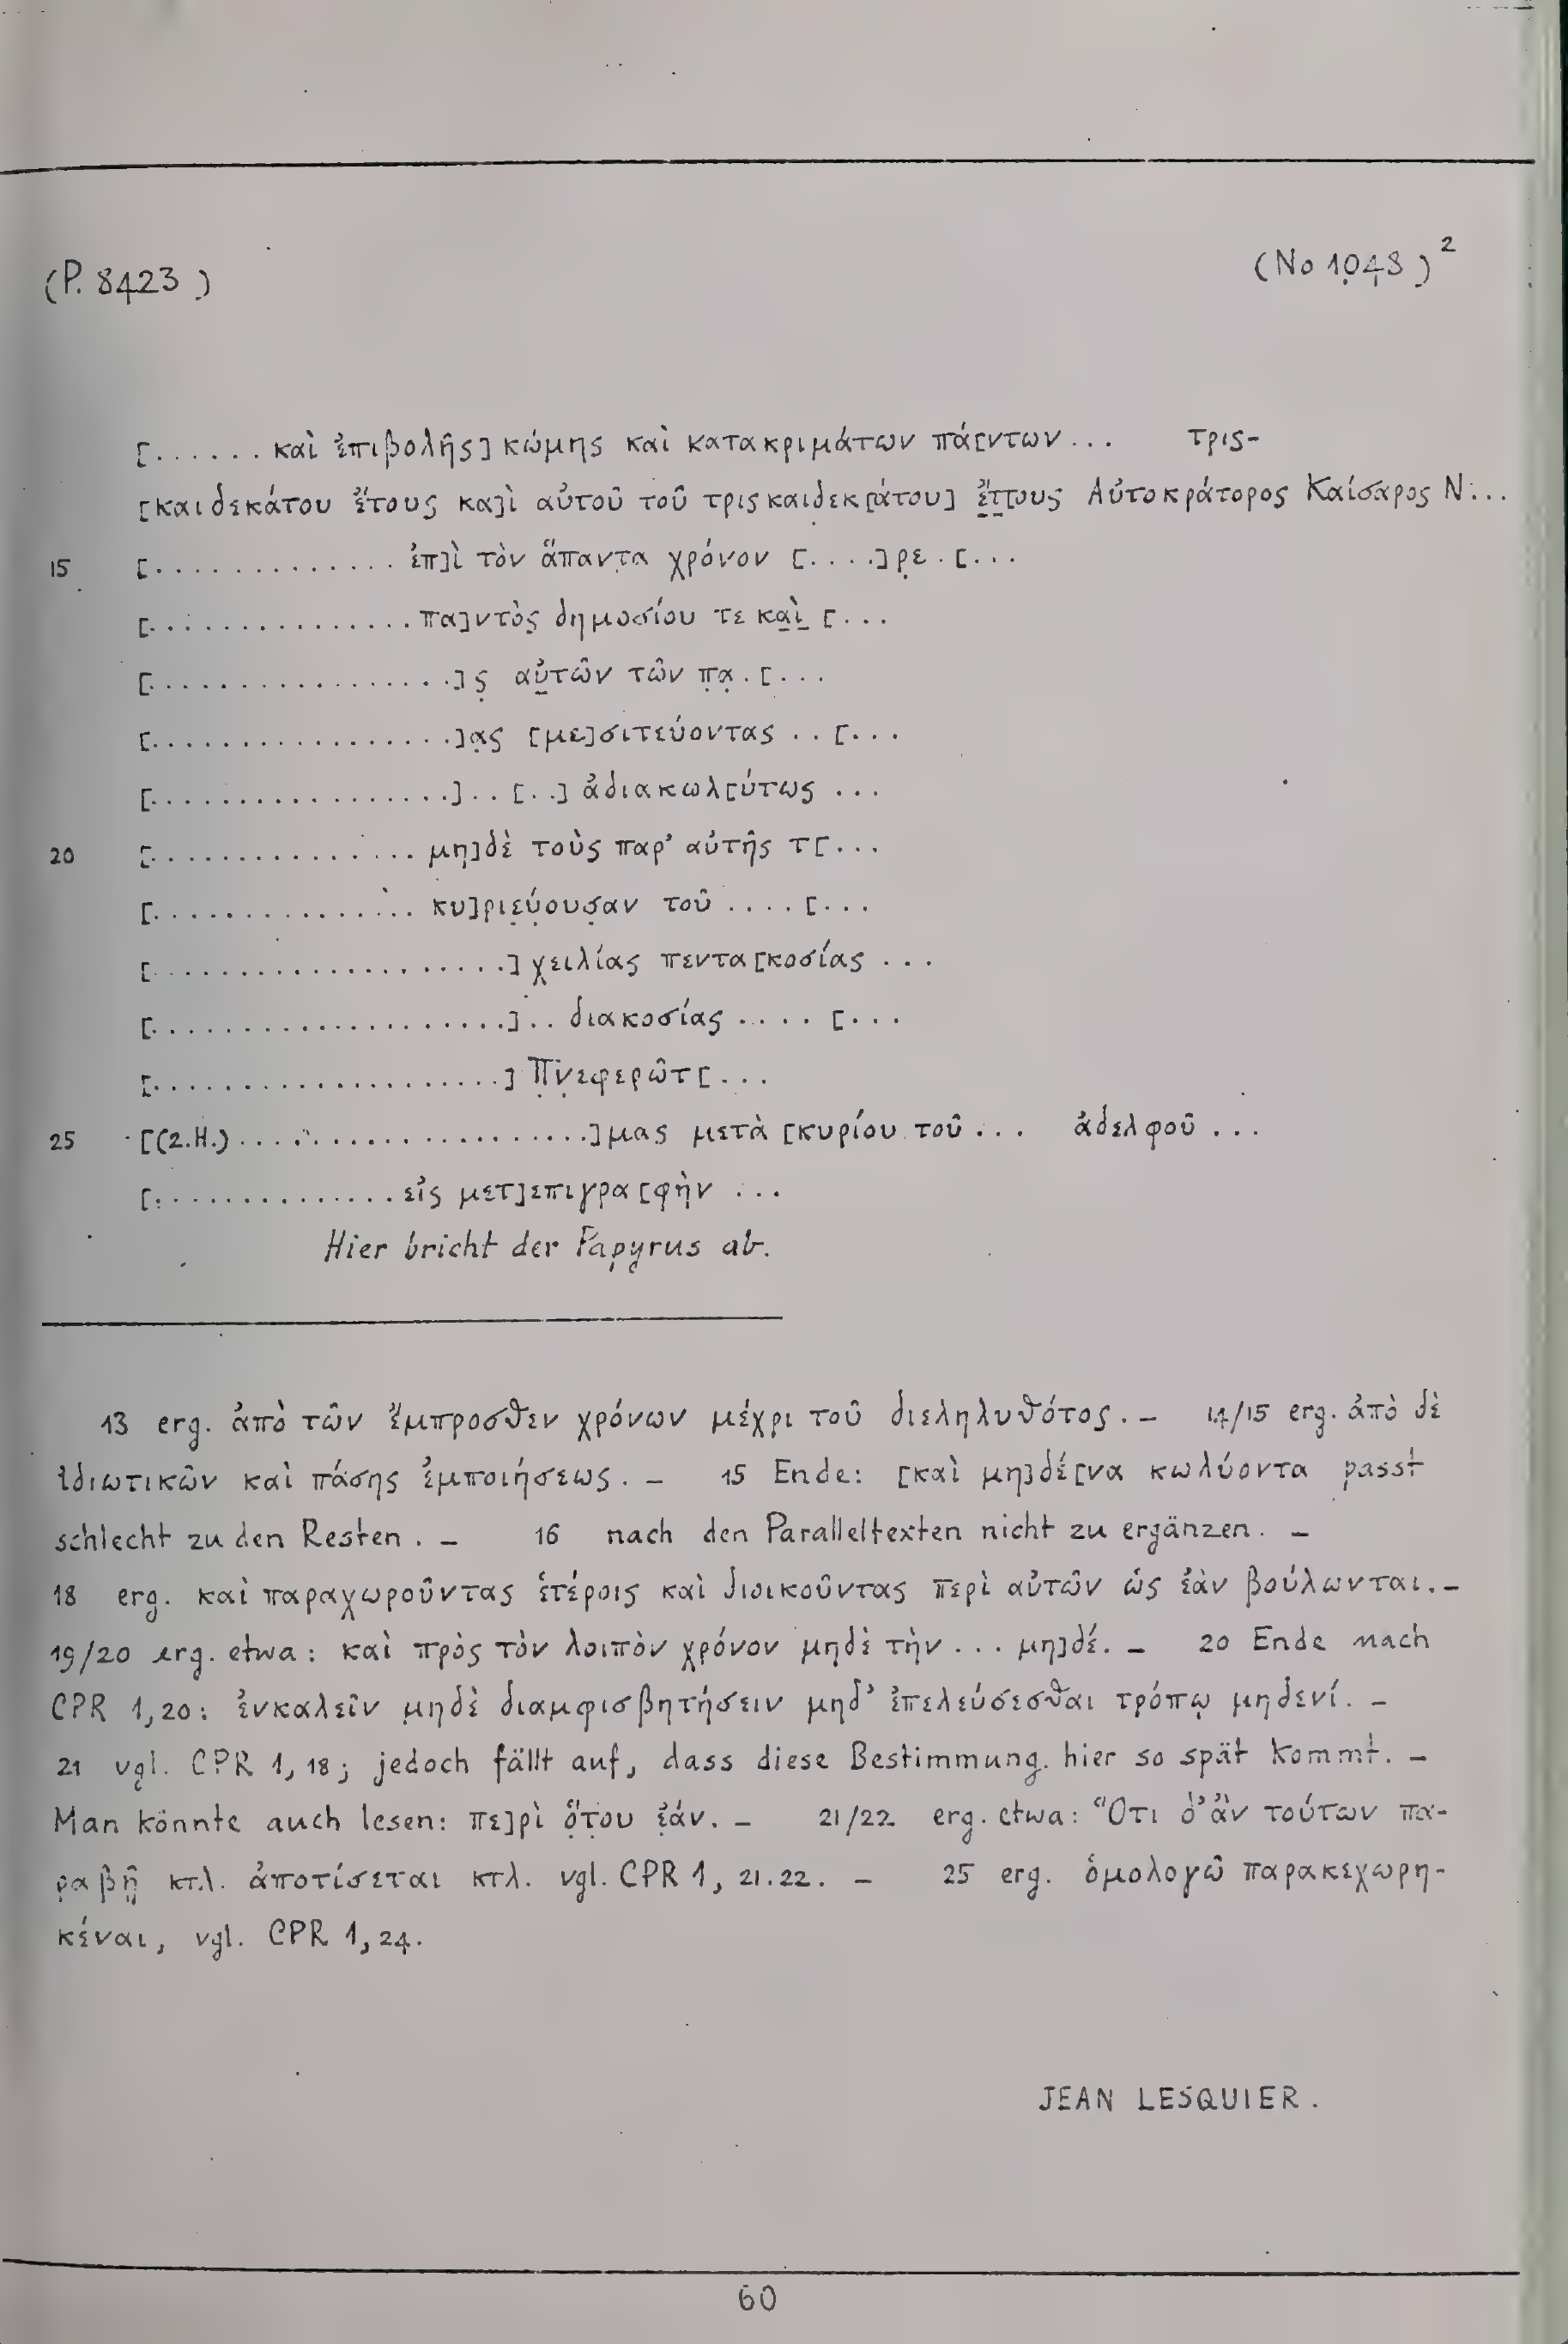 (P. 8423)
(No 1048)²
[...... καὶ ἐπιβολῆς] κώμης καὶ κατακριμάτων πά[ντων ... τρις-
[καιδεκάτου ἔτους κα]ὶ αὐτοῦ τοῦ τρισκαιδεκ[άτου] ἔτ[ους Αὐτοκράτορος Καίσαρος Ν...
15 [............. ἐπ]ὶ τὸν ἅπαντα χρόνον [....]ρ̣ε.[...
[............... πα]ντὸς δημοσίου τε καὶ [...
[.................]ς̣ αὐτῶν τῶν π̣α̣.[...
[.................]α̣ς [με]σιτεύοντας ..[...
[.................]..[..] ἀδιακωλ[ύτως ...
20 [............... μη]δὲ τοὺς παρ' αὐτῆς τ[...
[............... κυ]ριε̣ύ̣ουσ̣αν τοῦ ....[...
[....................] χειλίας πεντα[κοσίας ...
[....................].. διακοσίας ....[...
[....................] Π̣ν̣εφερῶτ[...
25 [(2.H.) ...................]μας μετὰ [κυρίου τοῦ ... ἀδελφοῦ ...
[.............. εἰς μετ]επιγρα[φὴν ...
Hier bricht der Papyrus ab.
13 erg. ἀπὸ τῶν ἔμπροσθεν χρόνων μέχρι τοῦ διεληλυθότος. – 14/15 erg. ἀπὸ δὲ
ἰδιωτικῶν καὶ πάσης ἐμποιήσεως. – 15 Ende: [καὶ μη]δέ[να κωλύοντα passt
schlecht zu den Resten. – 16 nach den Paralleltexten nicht zu ergänzen. –
18 erg. καὶ παραχωροῦντας ἑτέροις καὶ διοικοῦντας περὶ αὐτῶν ὡς ἐὰν βούλωνται. –
19/20 erg. etwa: καὶ πρὸς τὸν λοιπὸν χρόνον μηδὲ τὴν ... μη]δέ. – 20 Ende nach
CPR 1, 20: ἐνκαλεῖν μηδὲ διαμφισβητήσειν μηδ' ἐπελεύσεσθαι τρόπῳ μηδενί. –
21 vgl. CPR 1, 18; jedoch fällt auf, dass diese Bestimmung hier so spät kommt. –
Man könnte auch lesen: πε]ρὶ ὅ̣τ̣ου ἐ̣άν. – 21/22 erg. etwa: Ὅτι δ' ἂν τούτων πα-
ραβῇ κτλ. ἀποτίσεται κτλ. vgl. CPR 1, 21.22. – 25 erg. ὁμολογῶ παρακεχωρη-
κέναι, vgl. CPR 1, 24.
JEAN LESQUIER.
60